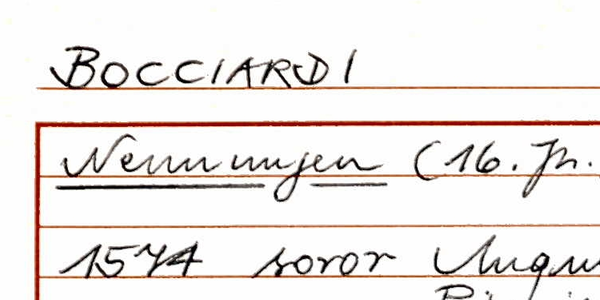 BOCCIARDI
Nennungen (16. Jh.
1574 soror